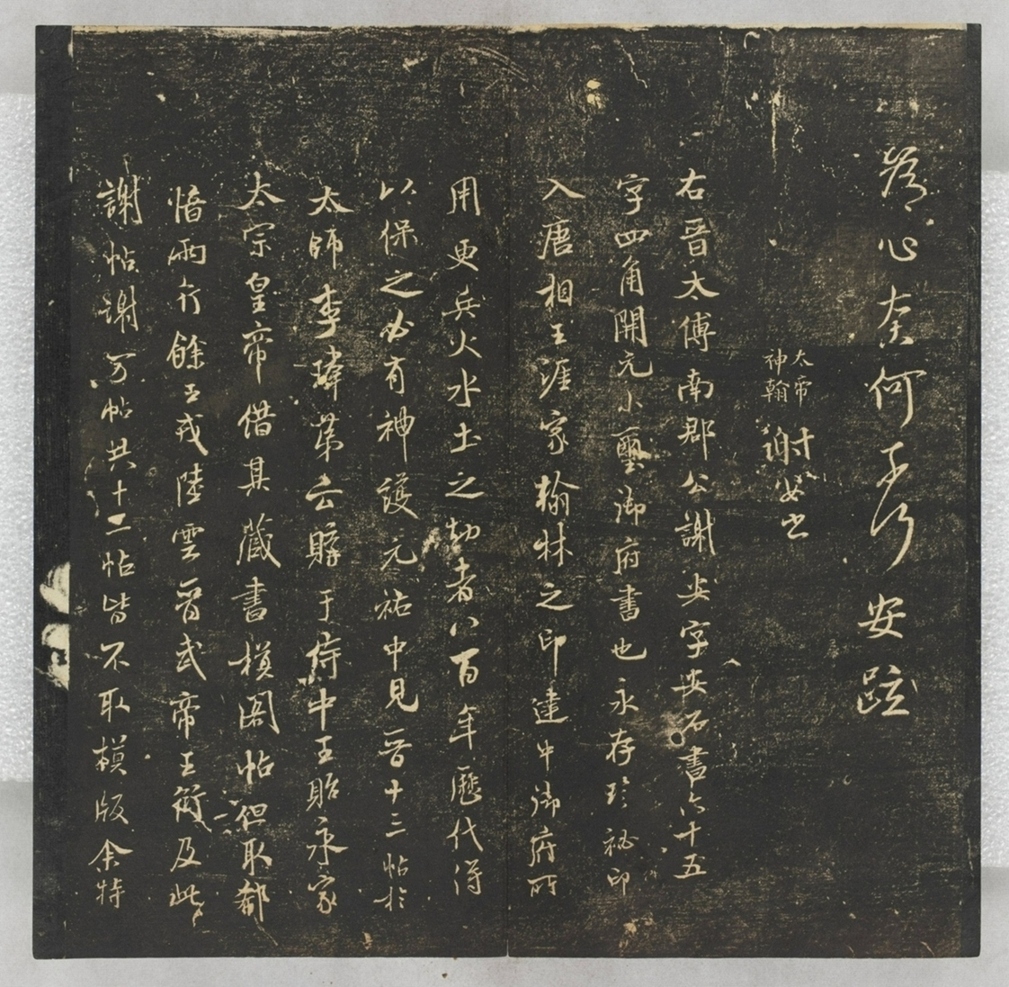 為心奈何奈何安疏
太帝
神翰
謝安書
右晉太傅南郡公謝安字安石書六十五
字四角開元小璽御府書也永存珍秘印
入唐相王涯家翰林之印建中御府所
用更兵火水土之劫者八百年歷代得
以保之必有神護元祐中見晉十三帖於
太師李瑋第云購于侍中王貽永家
太宗皇帝借其藏書模閣帖但取郗
愔兩行餘王戎陸雲晉武帝王衍及此
謝帖謝万帖共十二帖皆不取模版余特